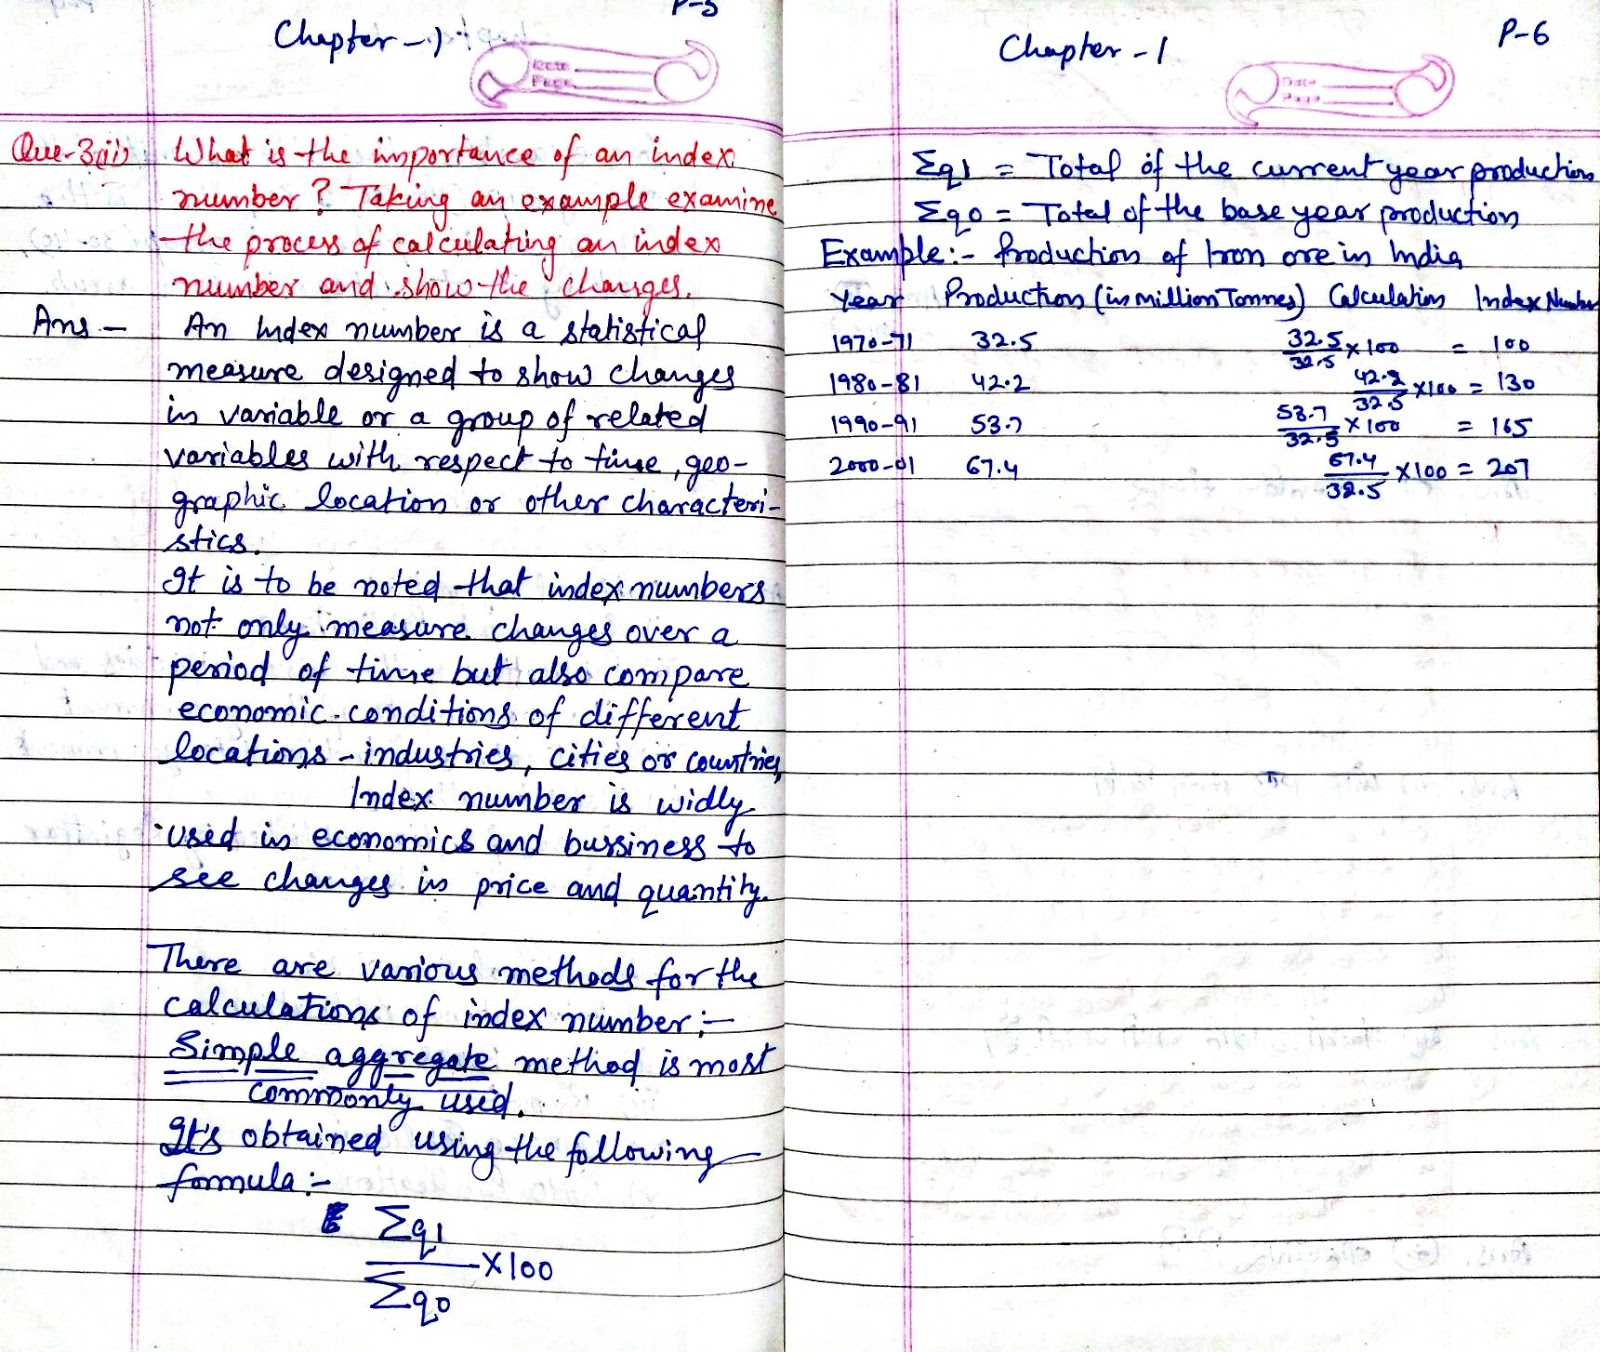 P-5
Chapter-1
Date
Page
Que-3(ii) What is the importance of an index
number? Taking an example examine
the process of calculating an index
number and show the changes.
Ans - An Index number is a statistical
measure designed to show changes
in variable or a group of related
variables with respect to time, geo-
graphic location or other characteri-
stics.
It is to be noted that index numbers
not only measure changes over a
period of time but also compare
economic conditions of different
locations - industries, cities or countries,
Index number is widly
used in economics and bussiness to
see changes in price and quantity.
There are various methods for the
calculations of index number:-
Simple aggregate method is most
commonly used.
It's obtained using the following
formula:-
Σq1
×100
Σq0
P-6
Chapter-1
Date
Page
Σq1 = Total of the current year production
Σq0 = Total of the base year production
Example:- Production of Iron ore in India
Year Production (in million Tonnes) Calculation Index Number
1970-71 32.5 32.5/32.5 ×100 = 100
1980-81 42.2 42.2/32.5 ×100 = 130
1990-91 53.7 53.7/32.5 ×100 = 165
2000-01 67.4 67.4/32.5 ×100 = 207